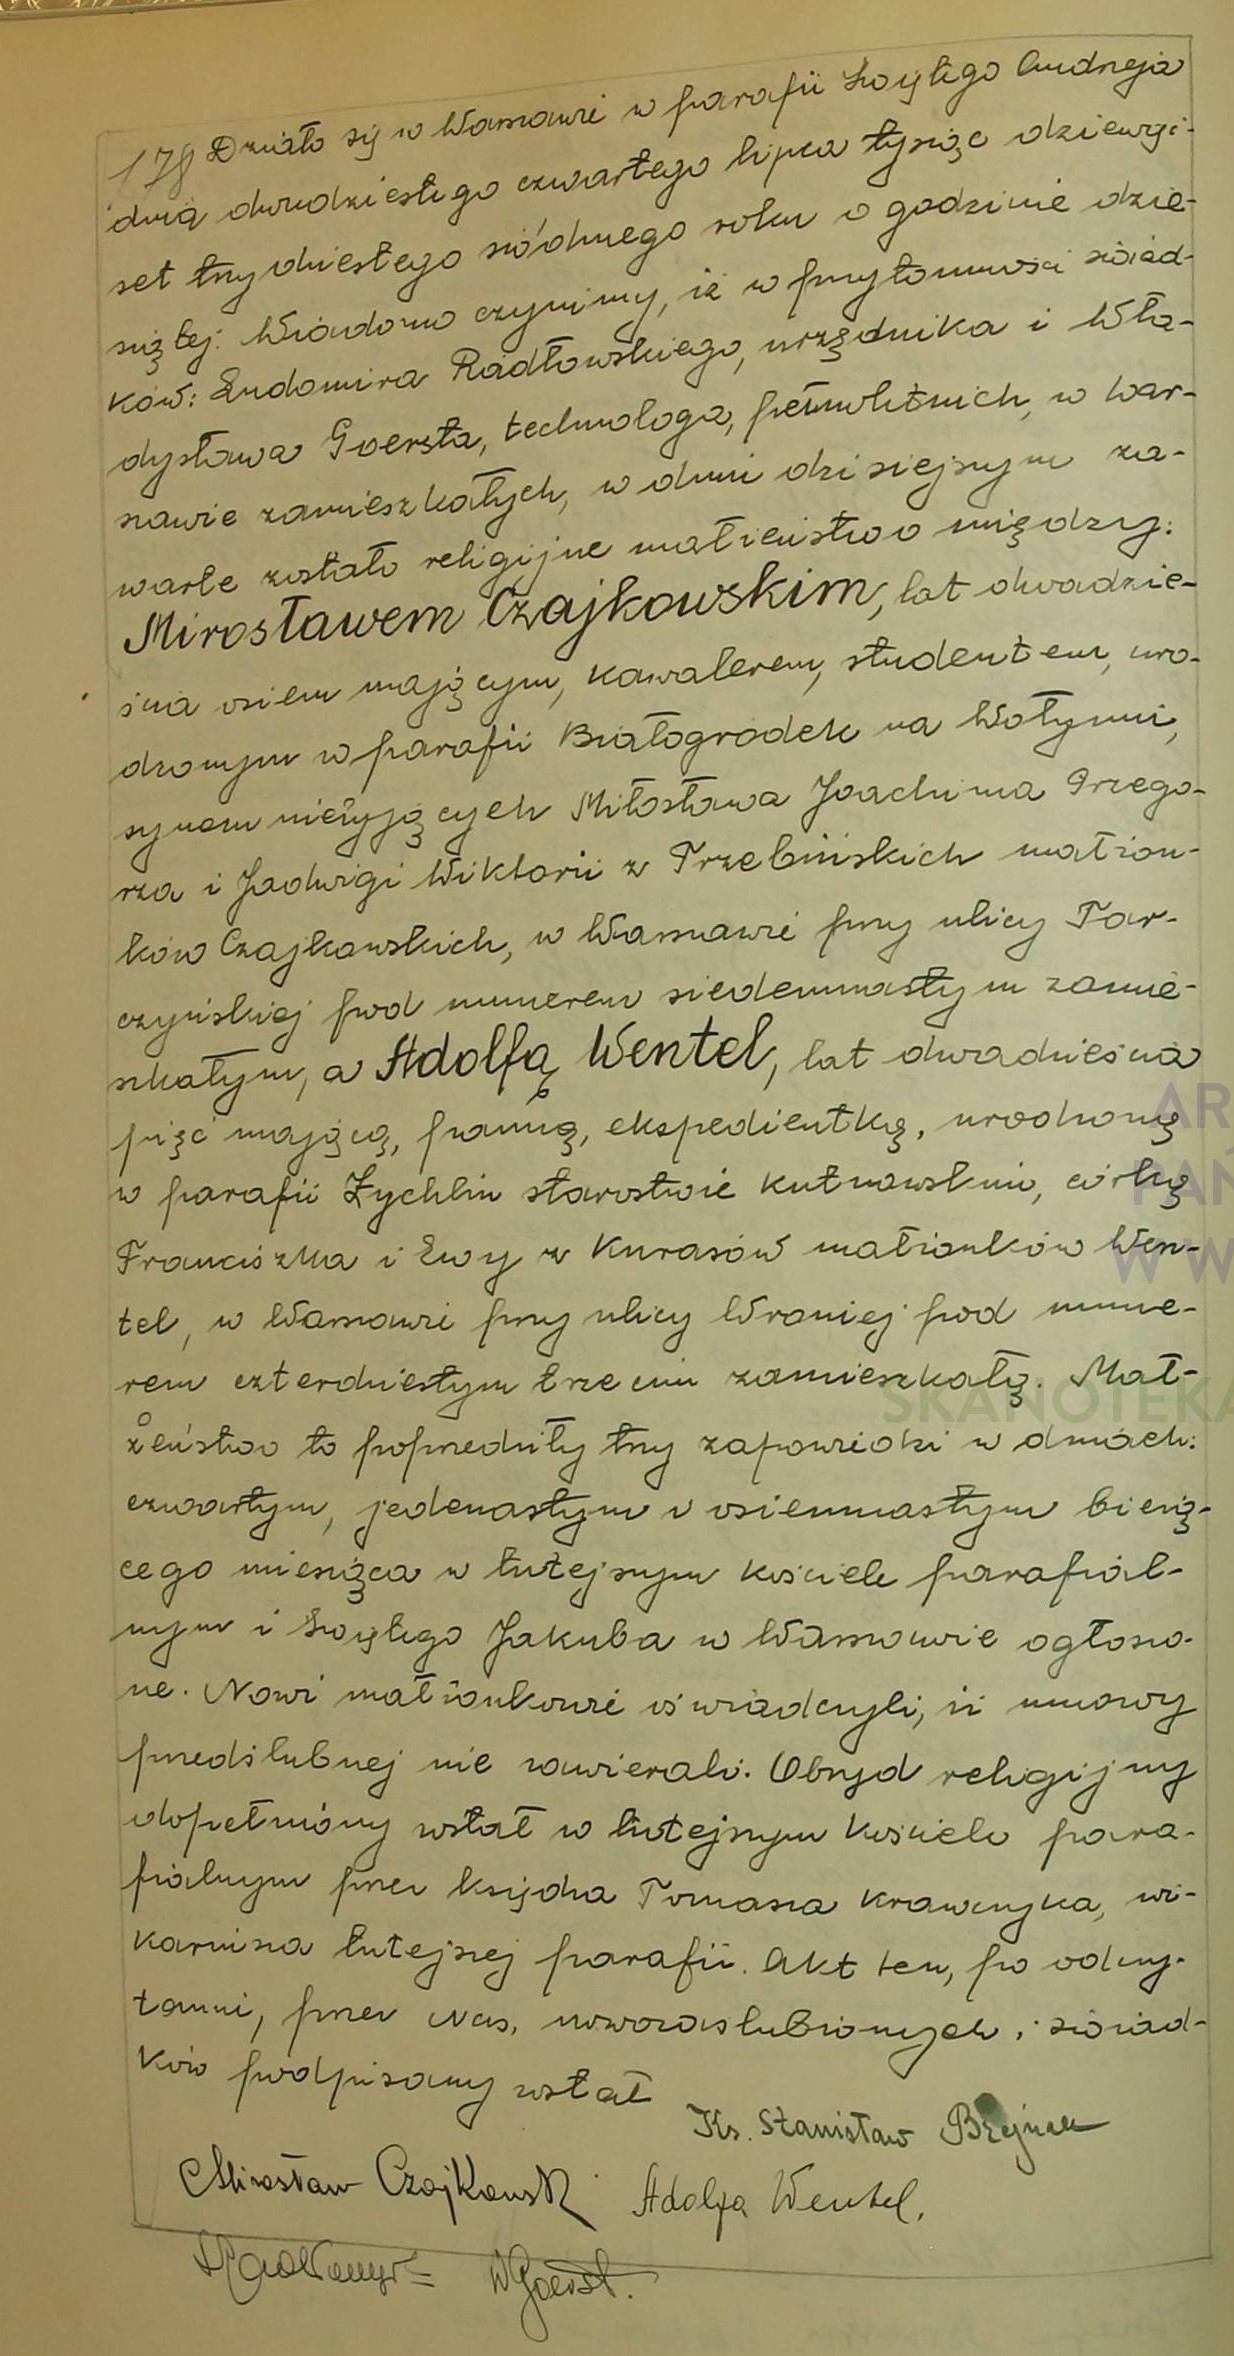 178 Działo się w Warszawie w parafii świętego Andrzeja
dnia dwudziestego czwartego lipca tysiąc dziewięć-
set trzydziestego siódmego roku o godzinie dzie-
siątej. Wiadomo czynimy, iż w przytomności świad-
ków: Ludomira Radłowskiego, urzędnika i Wła-
dysława Goersta, technologa, pełnoletnich, w War-
szawie zamieszkałych, w dniu dzisiejszym za-
warte zostało religijne małżeństwo między:
Mirosławem Czajkowskim, lat dwadzie-
ścia osiem mającym, kawalerem, studentem, uro-
dzonym w parafii Białogródek na Wołyniu,
synem nieżyjących Miłosława Joachima Grzego-
rza i Jadwigi Wiktorii z Trzebińskich małżon-
ków Czajkowskich, w Warszawie przy ulicy Tar-
czyńskiej pod numerem siedemnastym zamie-
szkałym, a Adolfą Wentel, lat dwadzieścia
pięć mającą, panną, ekspedientką, urodzoną
w parafii Żychlin starostwie kutnowskim, córką
Franciszka i Ewy z Kurasów małżonków Wen-
tel, w Warszawie przy ulicy Wroniej pod nume-
rem czterdziestym trzecim zamieszkałą. Mał-
żeństwo to poprzedziły trzy zapowiedzi w dniach:
czwartym, jedenastym i osiemnastym bieżą-
cego miesiąca w tutejszym kościele parafial-
nym i świętego Jakuba w Warszawie ogłoszo-
ne. Nowi małżonkowie oświadczyli, iż umowy
przedślubnej nie zawierali. Obrzęd religijny
dopełniony został w tutejszym kościele para-
fialnym przez księdza Tomasza Krawczyka, wi-
kariusza tutejszej parafii. Akt ten, po odczy-
taniu, przez Nas, nowozaślubionych i świad-
ków podpisany został
Ks. Stanisław
Mirosław Czajkowski Adolfa Wentel.
WGoerst.
SKANOTEKA